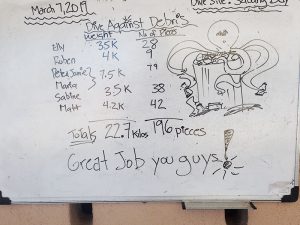 March 7, 2019
Dive Site:
Dive Against Debris
Weight No of Pieces
Elly 3.5K 28
Ruben 4K 9
Peter, Jamie } 7.5K 79
Maria
Sabine 3.5K 38
Matt 4.2K 42
Totals 22.7 Kilos 196 pieces
Great Job you guys!